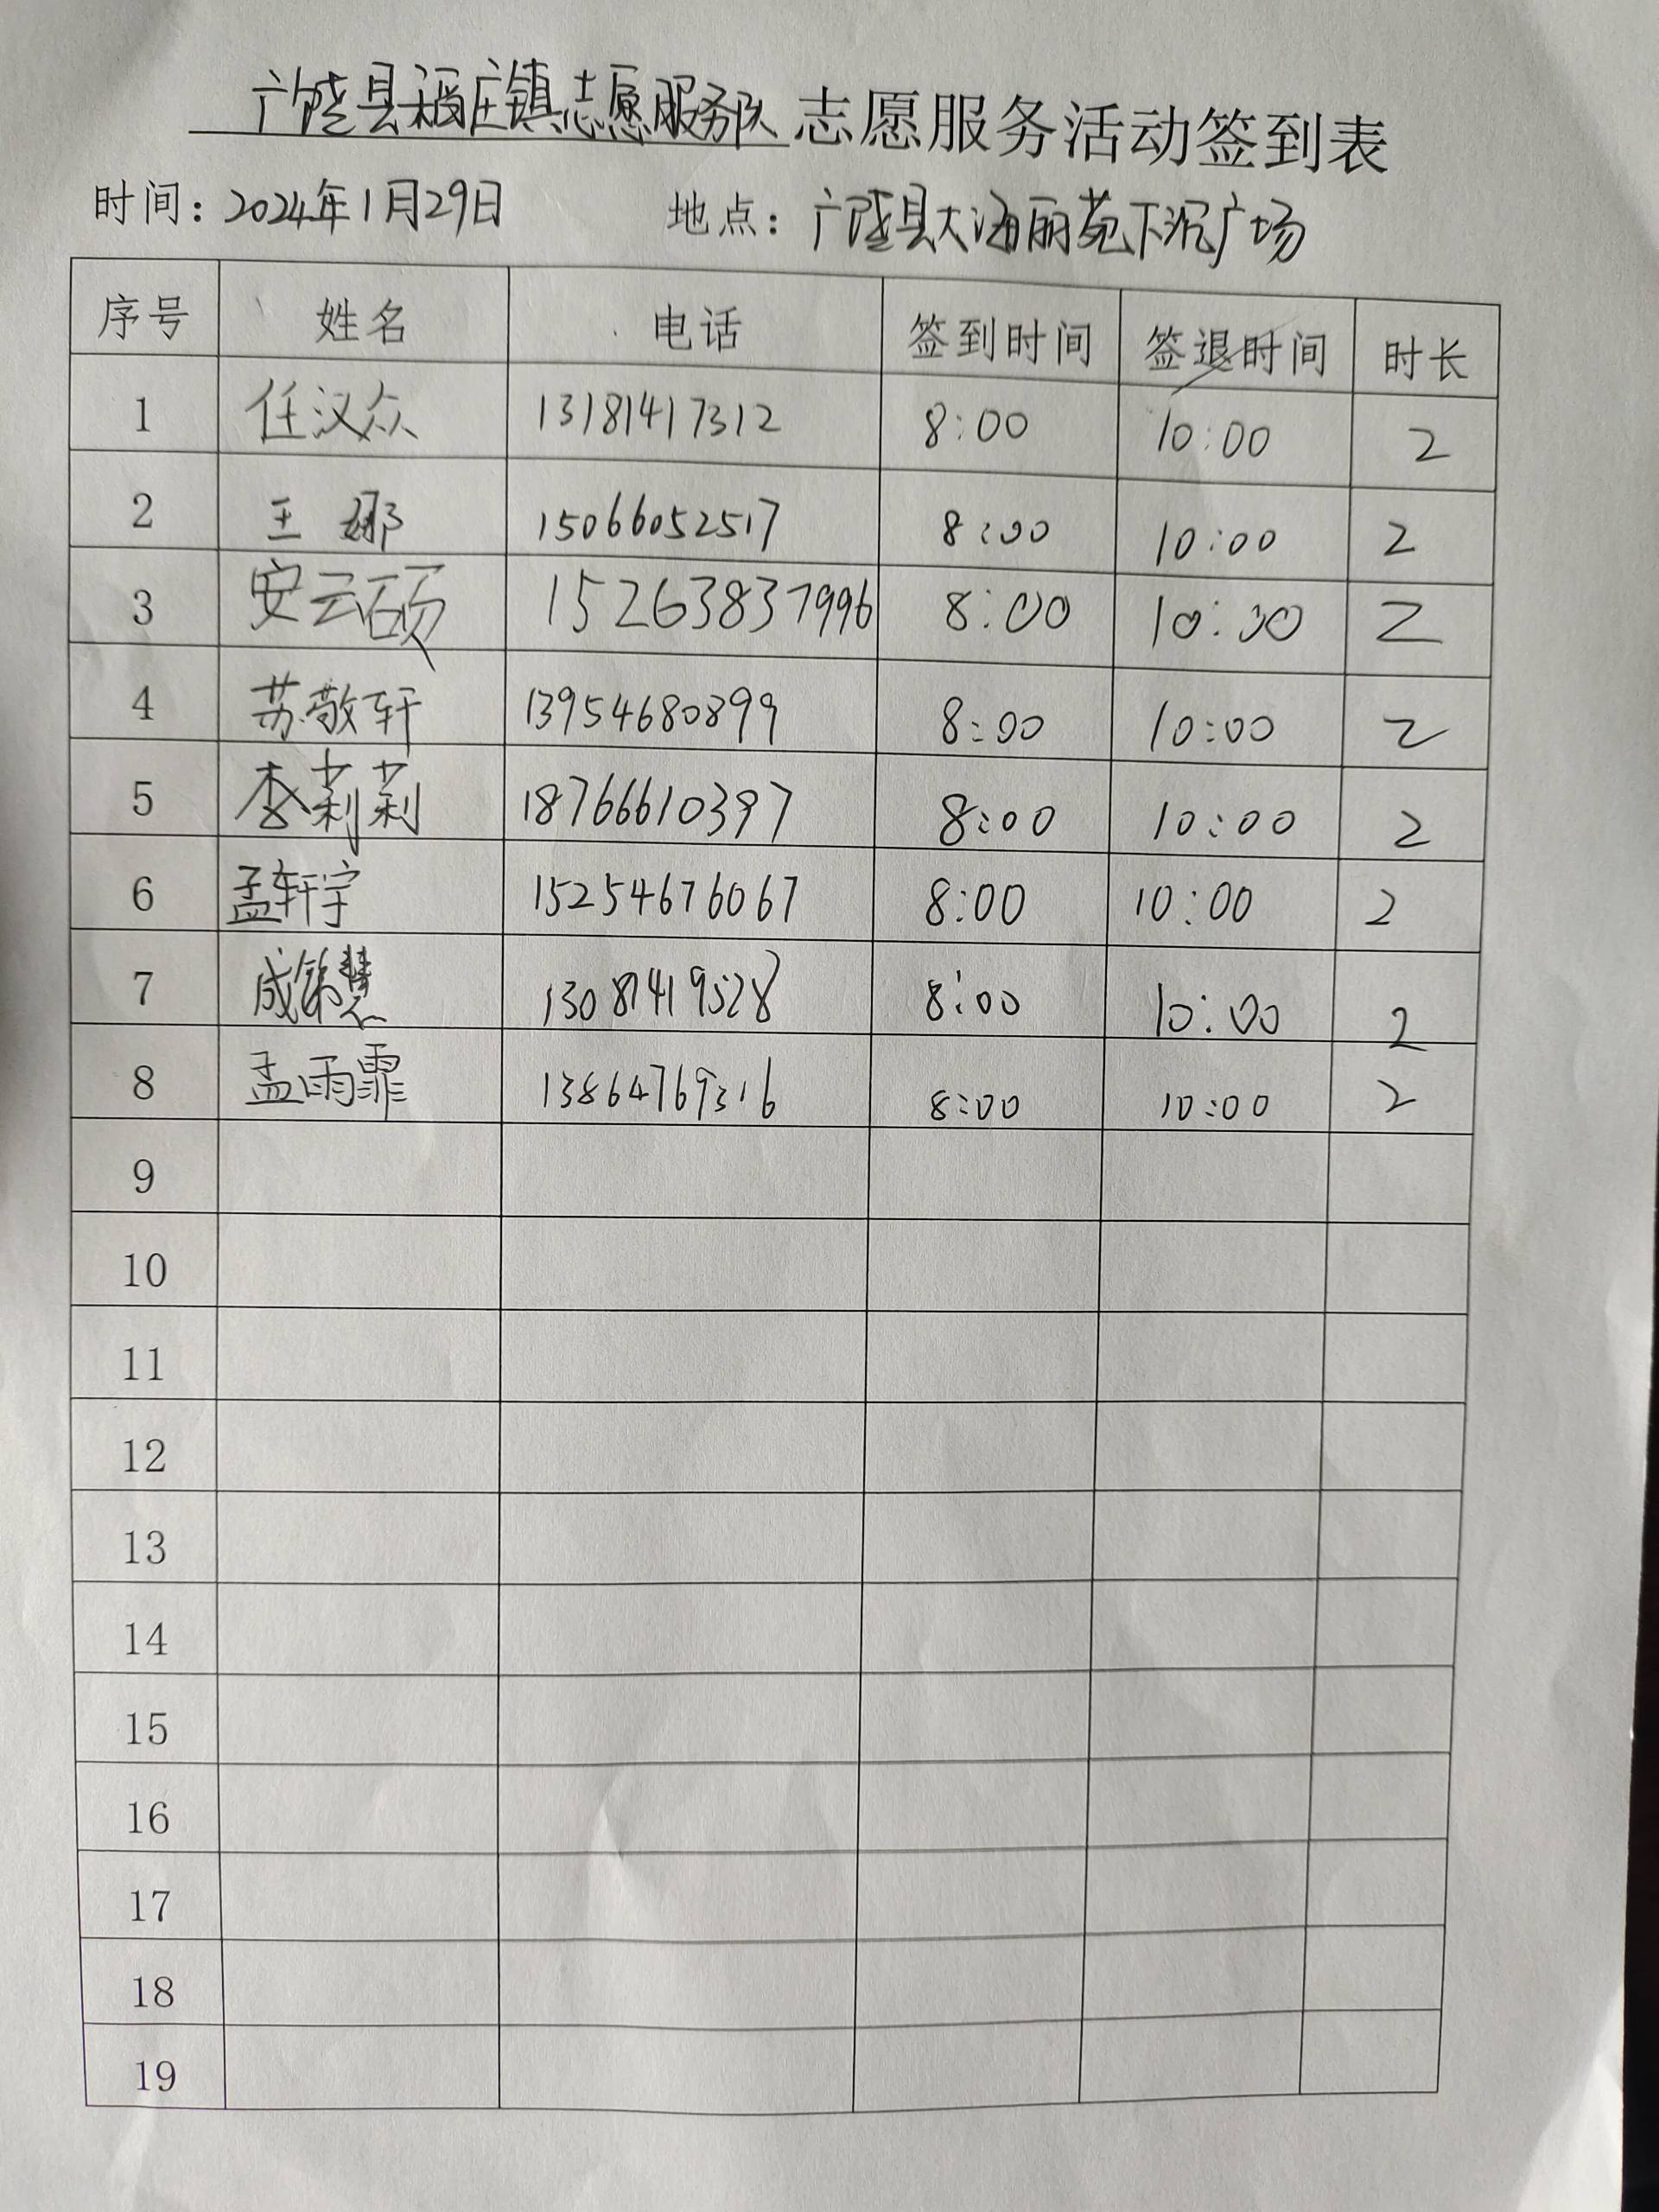 广饶县稻庄镇志愿服务队 志愿服务活动签到表
时间：2024年1月29日 地点：广饶县大海丽苑下沉广场
序号 姓名 电话 签到时间 签退时间 时长
1 任汉众 13181417312 8:00 10:00 2
2 王娜 15066052517 8:00 10:00 2
3 安云硕 15263837996 8:00 10:00 2
4 苏敬轩 13954680899 8:00 10:00 2
5 李莉莉 18766610397 8:00 10:00 2
6 孟轩宇 15254676067 8:00 10:00 2
7 成 慧 13081419528 8:00 10:00 2
8 孟雨霏 13864769316 8:00 10:00 2
9
10
11
12
13
14
15
16
17
18
19